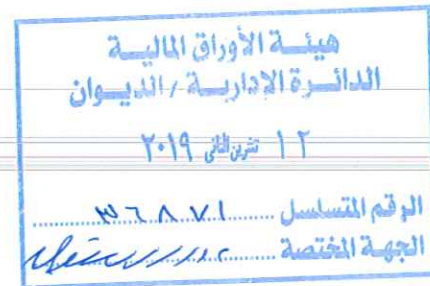 هيئة الأوراق المالية
الدائرة الإدارية / الديوان
١٢ تشرين الثاني ٢٠١٩
الرقم المتسلسل ٣٦٨٧١
الجهة المختصة